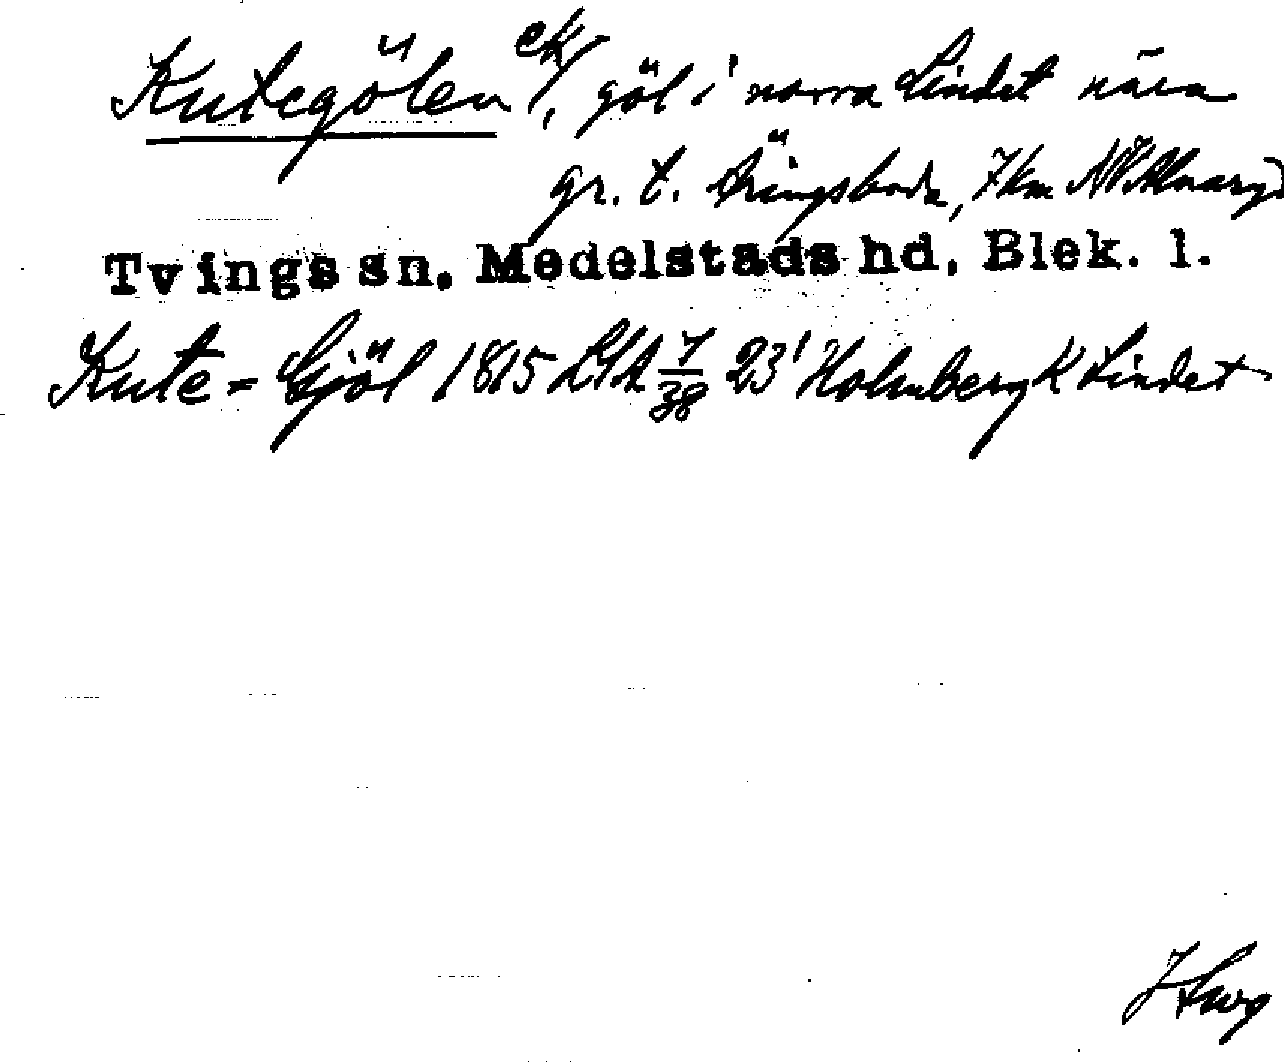 Kutegölen ek/, göl i norra Lindet nära
gr. t. Äringsboda, 7 km NV Alnaryd
Tvings sn, Medelstads hd, Blek. l.
Kute-Gjöl 1815 LSA 7/38 23' Holmberg K Lindet